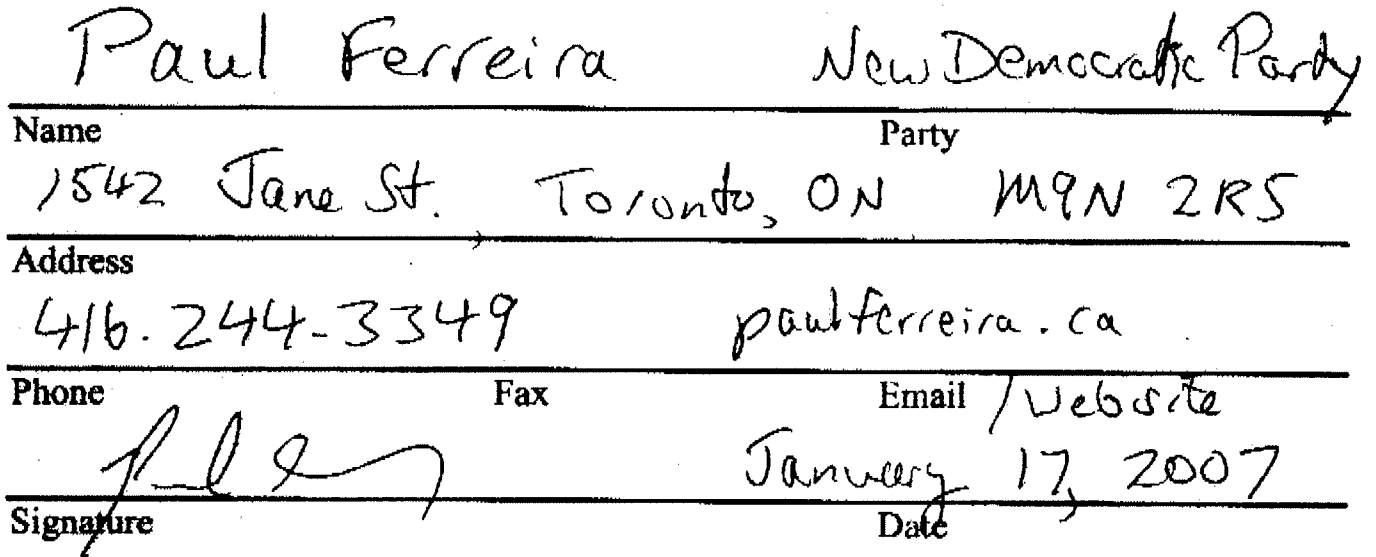 Paul Ferreira New Democratic Party
Name Party
1542 Jane St. Toronto, ON M9N 2R5
Address
416.244-3349 paulferreira.ca
Phone Fax Email /website
January 17, 2007
Signature Date